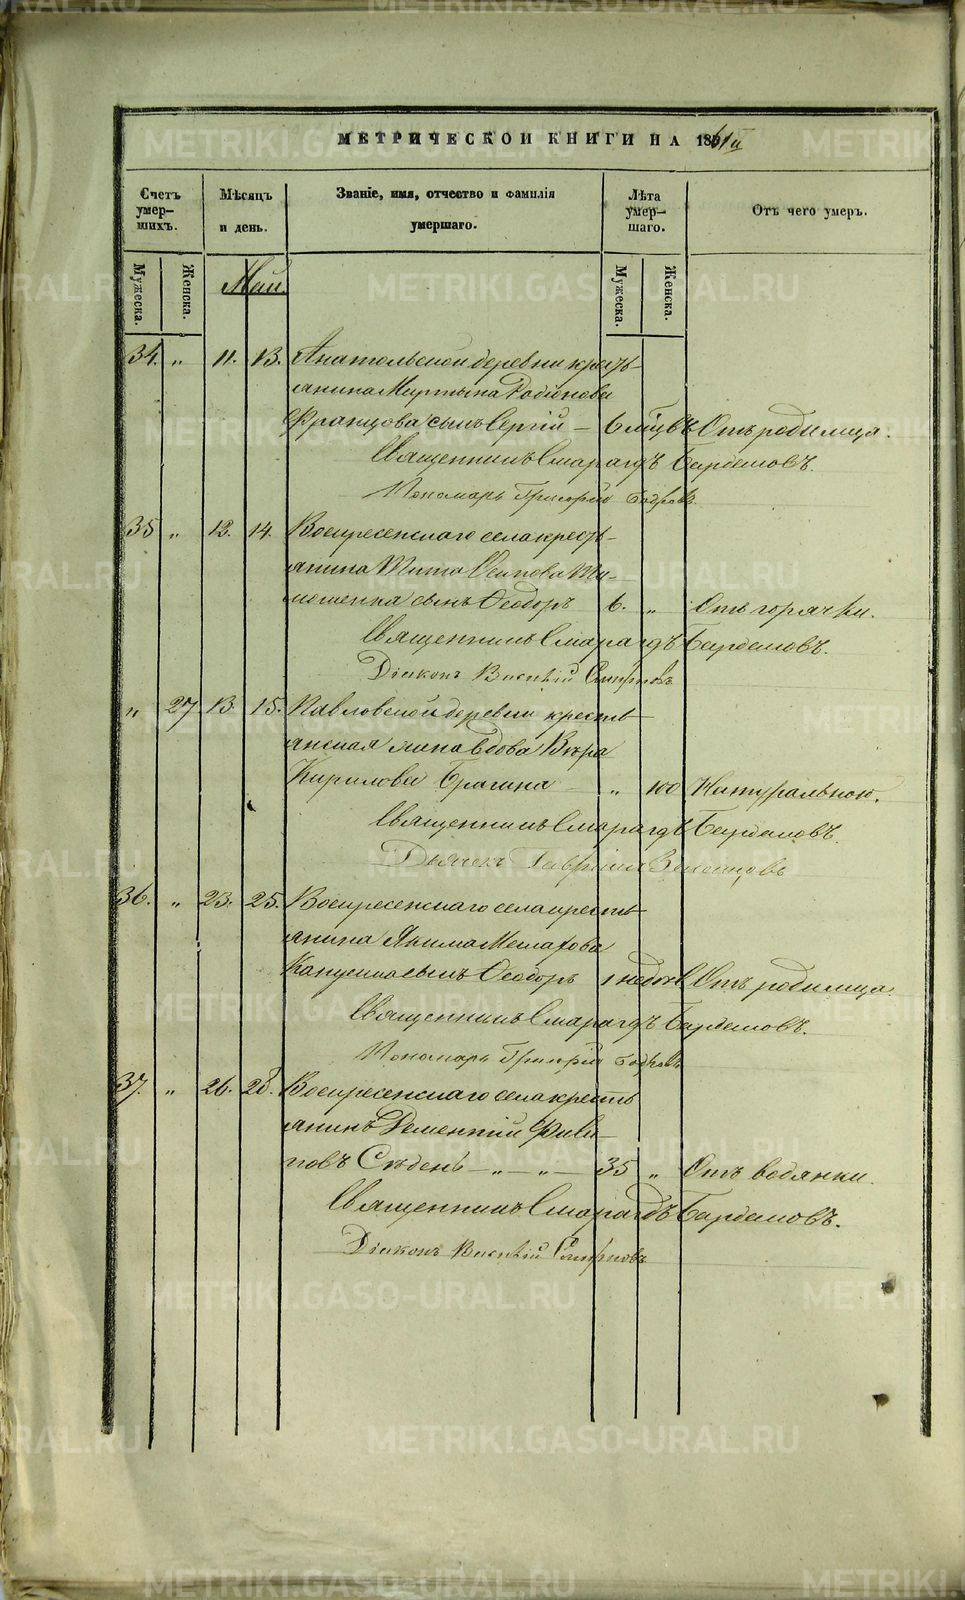 МЕТРИЧЕСКОЙ КНИГИ НА 1861й
Счетъ умер-шихъ.
Мѣсяцъ и день.
Званіе, имя, отчество и фамилія умершаго.
Лѣта умер-шаго.
Отъ чего умеръ.
Мужеска.
Женска.
Мужеска.
Женска.
Май.
34. „ 11. 13. Анатольской деревни кресть-
янина Мартына Родіонова
Францова сынъ Сергій — 6 м Отъ родимца.
Священникъ Смарагдъ Бардамовъ.
Пономарь Григорій
35 „ 12. 14. Воскресенскаго села кресть-
янина Тита Осипова Ти-
мошенка сынъ Ѳеодоръ 6. „ Отъ горячки.
Священникъ Смарагдъ Бардамовъ.
Діаконъ Василій Смирновъ
„ 27 13. 15. Павловской деревни кресть-
янская жена вдова Вѣра
Кирилова Брагина — „ 100 Натуральною.
Священникъ Смарагдъ Бардамовъ.
Дьячекъ Гавріилъ
36. „ 23. 25. Воскресенскаго села кресть-
янина Якима
сынъ Ѳеодоръ 1 Отъ родимца.
Священникъ Смарагдъ Бардамовъ.
Пономарь Григорій
37. „ 26. 28. Воскресенскаго села кресть
янинъ Дементій Фили-
повъ — „ — „ — 35 „ Отъ водянки.
Священникъ Смарагдъ Бардамовъ.
Діаконъ Василій Смирновъ
METRIKI.GASO-URAL.RU